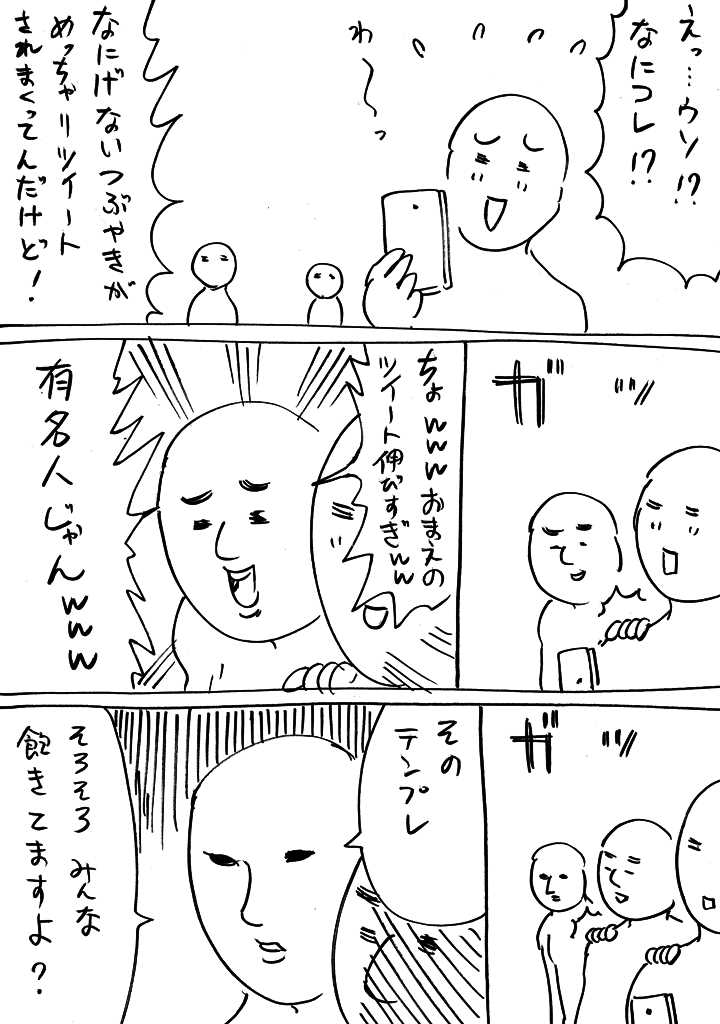 えっ…ウソ!?
なにコレ!?
わーっ
なにげないつぶやきが
めっちゃリツイート
されまくってんだけど!
ガッ
ちょwww おまえの
ツイート伸びすぎww
有名人じゃんwww
ガッ
その
テンプレ
そろそろ みんな
飽きてますよ?